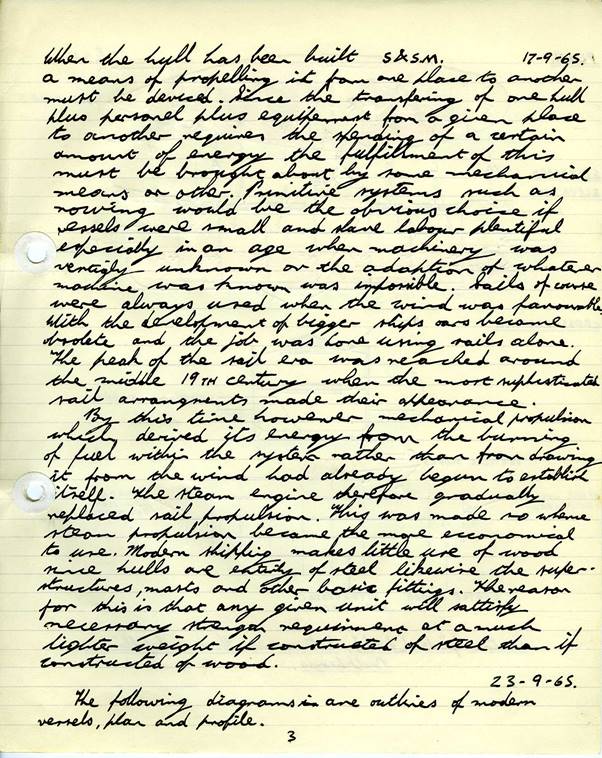 When the hull has been built S&S.M. 17-9-65.
a means of propelling it from one place to another
must be devised. Since the transfering of one hull
plus personel plus equipement from a given place
to another requires the spending of a certain
amount of energy the fulfillment of this
must be brought about by some mechanical
means or other. Primitive systems such as
rowing would be the obvious choice if
vessels were small and slave labour plentiful
especially in an age when machinery was
unknown or the adaption of whatever
machine, was known was impossible. Sails of course
were always used when the wind was favourable
With the development of bigger ships oars became
obsolete and the job was done using sails alone.
The peak of the sail era was reached around
the middle 19TH century when the most sophisticated
sail arrangments made their appearance.
By this time however mechanical propulsion
which derived its energy from the burning
of fuel within the system rather than from drawing
it from the wind had already begun to establish
itself. The steam engine therefore gradually
replaced sail propulsion. This was made so where
steam propulsion became the more economical
to use. Modern shipping makes little use of wood
since hulls are entirely of steel likewise the super-
structures, masts and other basic fittings. The reason
for this is that any given unit will sattisfy
necessary strength requirment at a much
lighter weight if constructed of steel than if
constructed of wood.
23-9-65.
The following diagrams in are outlines of modern
vessels, plan and profile.
3